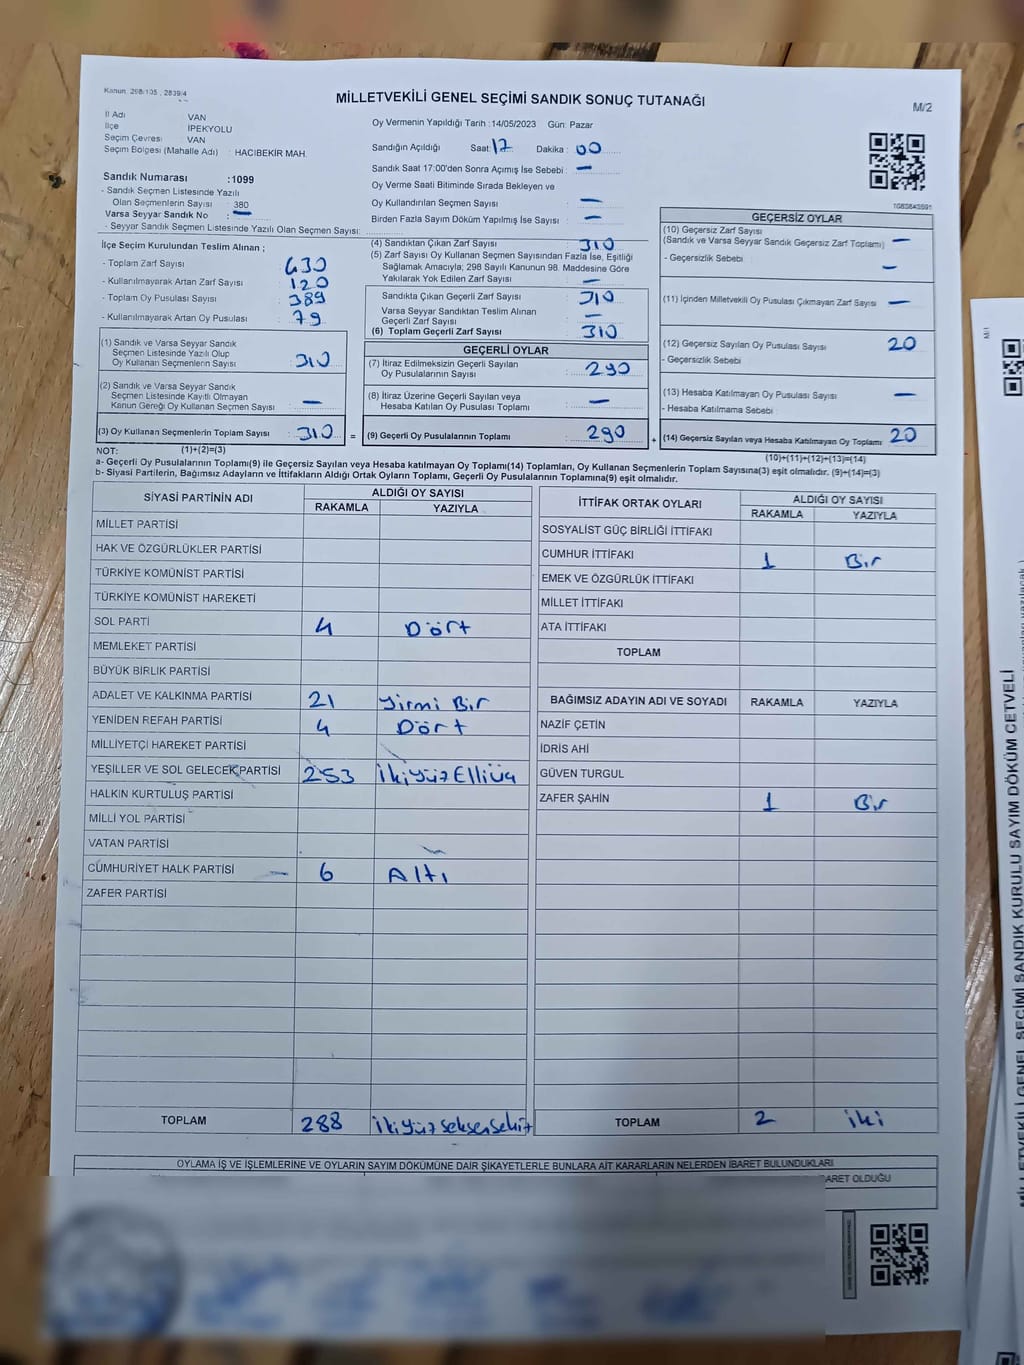 Kanun: 298/105 , 2839/4
MİLLETVEKİLİ GENEL SEÇİMİ SANDIK SONUÇ TUTANAĞI
M/2
İl Adı VAN
İlçe İPEKYOLU
Seçim Çevresi VAN
Seçim Bölgesi (Mahalle Adı) : HACIBEKİR MAH.
Sandık Numarası :1099
- Sandık Seçmen Listesinde Yazılı
Olan Seçmenlerin Sayısı : 380
Varsa Seyyar Sandık No : —
- Seyyar Sandık Seçmen Listesinde Yazılı Olan Seçmen Sayısı:
Oy Vermenin Yapıldığı Tarih :14/05/2023 Gün: Pazar
Sandığın Açıldığı Saat: 17 Dakika : 00
Sandık Saat 17:00'den Sonra Açımış İse Sebebi : —
Oy Verme Saati Bitiminde Sırada Bekleyen ve
Oy Kullandırılan Seçmen Sayısı : —
Birden Fazla Sayım Döküm Yapılmış İse Sayısı : —
1083843591
İlçe Seçim Kurulundan Teslim Alınan ;
- Toplam Zarf Sayısı : 430
- Kullanılmayarak Artan Zarf Sayısı : 120
- Toplam Oy Pusulası Sayısı : 389
- Kullanılmayarak Artan Oy Pusulası : 79
(1) Sandık ve Varsa Seyyar Sandık
Seçmen Listesinde Yazılı Olup
Oy Kullanan Seçmenlerin Sayısı : 310
(2) Sandık ve Varsa Seyyar Sandık
Seçmen Listesinde Kayıtlı Olmayan
Kanun Gereği Oy Kullanan Seçmen Sayısı : —
(3) Oy Kullanan Seçmenlerin Toplam Sayısı : 310 =
(1)+(2)=(3)
(4) Sandıktan Çıkan Zarf Sayısı : 310
(5) Zarf Sayısı Oy Kullanan Seçmen Sayısından Fazla İse, Eşitliği
Sağlamak Amacıyla; 298 Sayılı Kanunun 98. Maddesine Göre
Yakılarak Yok Edilen Zarf Sayısı : —
Sandıkta Çıkan Geçerli Zarf Sayısı : 310
Varsa Seyyar Sandıktan Teslim Alınan
Geçerli Zarf Sayısı : —
(6) Toplam Geçerli Zarf Sayısı : 310
GEÇERLİ OYLAR
(7) İtiraz Edilmeksizin Geçerli Sayılan
Oy Pusulalarının Sayısı : 290
(8) İtiraz Üzerine Geçerli Sayılan veya
Hesaba Katılan Oy Pusulası Toplamı : —
(9) Geçerli Oy Pusulalarının Toplamı : 290 +
GEÇERSİZ OYLAR
(10) Geçersiz Zarf Sayısı
(Sandık ve Varsa Seyyar Sandık Geçersiz Zarf Toplamı) : —
- Geçersizlik Sebebi : —
(11) İçinden Milletvekili Oy Pusulası Çıkmayan Zarf Sayısı : —
(12) Geçersiz Sayılan Oy Pusulası Sayısı : 20
- Geçersizlik Sebebi :
(13) Hesaba Katılmayan Oy Pusulası Sayısı : —
- Hesaba Katılmama Sebebi :
(14) Geçersiz Sayılan veya Hesaba Katılmayan Oy Toplamı : 20
(10)+(11)+(12)+(13)=(14)
NOT:
a- Geçerli Oy Pusulalarının Toplamı(9) ile Geçersiz Sayılan veya Hesaba katılmayan Oy Toplamı(14) Toplamları, Oy Kullanan Seçmenlerin Toplam Sayısına(3) eşit olmalıdır. (9)+(14)=(3)
b- Siyasi Partilerin, Bağımsız Adayların ve İttifakların Aldığı Ortak Oyların Toplamı, Geçerli Oy Pusulalarının Toplamına(9) eşit olmalıdır.
SİYASİ PARTİNİN ADI ALDIĞI OY SAYISI
RAKAMLA YAZIYLA
MİLLET PARTİSİ
HAK VE ÖZGÜRLÜKLER PARTİSİ
TÜRKİYE KOMÜNİST PARTİSİ
TÜRKİYE KOMÜNİST HAREKETİ
SOL PARTİ 4 Dört
MEMLEKET PARTİSİ
BÜYÜK BİRLİK PARTİSİ
ADALET VE KALKINMA PARTİSİ 21 yirmi Bir
YENİDEN REFAH PARTİSİ 4 Dört
MİLLİYETÇİ HAREKET PARTİSİ
YEŞİLLER VE SOL GELECEK PARTİSİ 253 ikiyüz Elliüç
HALKIN KURTULUŞ PARTİSİ
MİLLİ YOL PARTİSİ
VATAN PARTİSİ
CUMHURİYET HALK PARTİSİ 6 Altı
ZAFER PARTİSİ
TOPLAM 288 ikiyüz seksensekiz
İTTİFAK ORTAK OYLARI ALDIĞI OY SAYISI
RAKAMLA YAZIYLA
SOSYALİST GÜÇ BİRLİĞİ İTTİFAKI
CUMHUR İTTİFAKI 1 Bir
EMEK VE ÖZGÜRLÜK İTTİFAKI
MİLLET İTTİFAKI
ATA İTTİFAKI
TOPLAM
BAĞIMSIZ ADAYIN ADI VE SOYADI RAKAMLA YAZIYLA
NAZİF ÇETİN
İDRİS AHİ
GÜVEN TURGUL
ZAFER ŞAHİN 1 Bir
TOPLAM 2 iki
OYLAMA İŞ VE İŞLEMLERİNE VE OYLARIN SAYIM DÖKÜMÜNE DAİR ŞİKAYETLERLE BUNLARA AİT KARARLARIN NELERDEN İBARET BULUNDUKLARI
BARET OLDUĞU
M/1
MİLLETVEKİLİ GENEL SEÇİMİ SANDIK KURULU SAYIM DÖKÜM CETVELİ